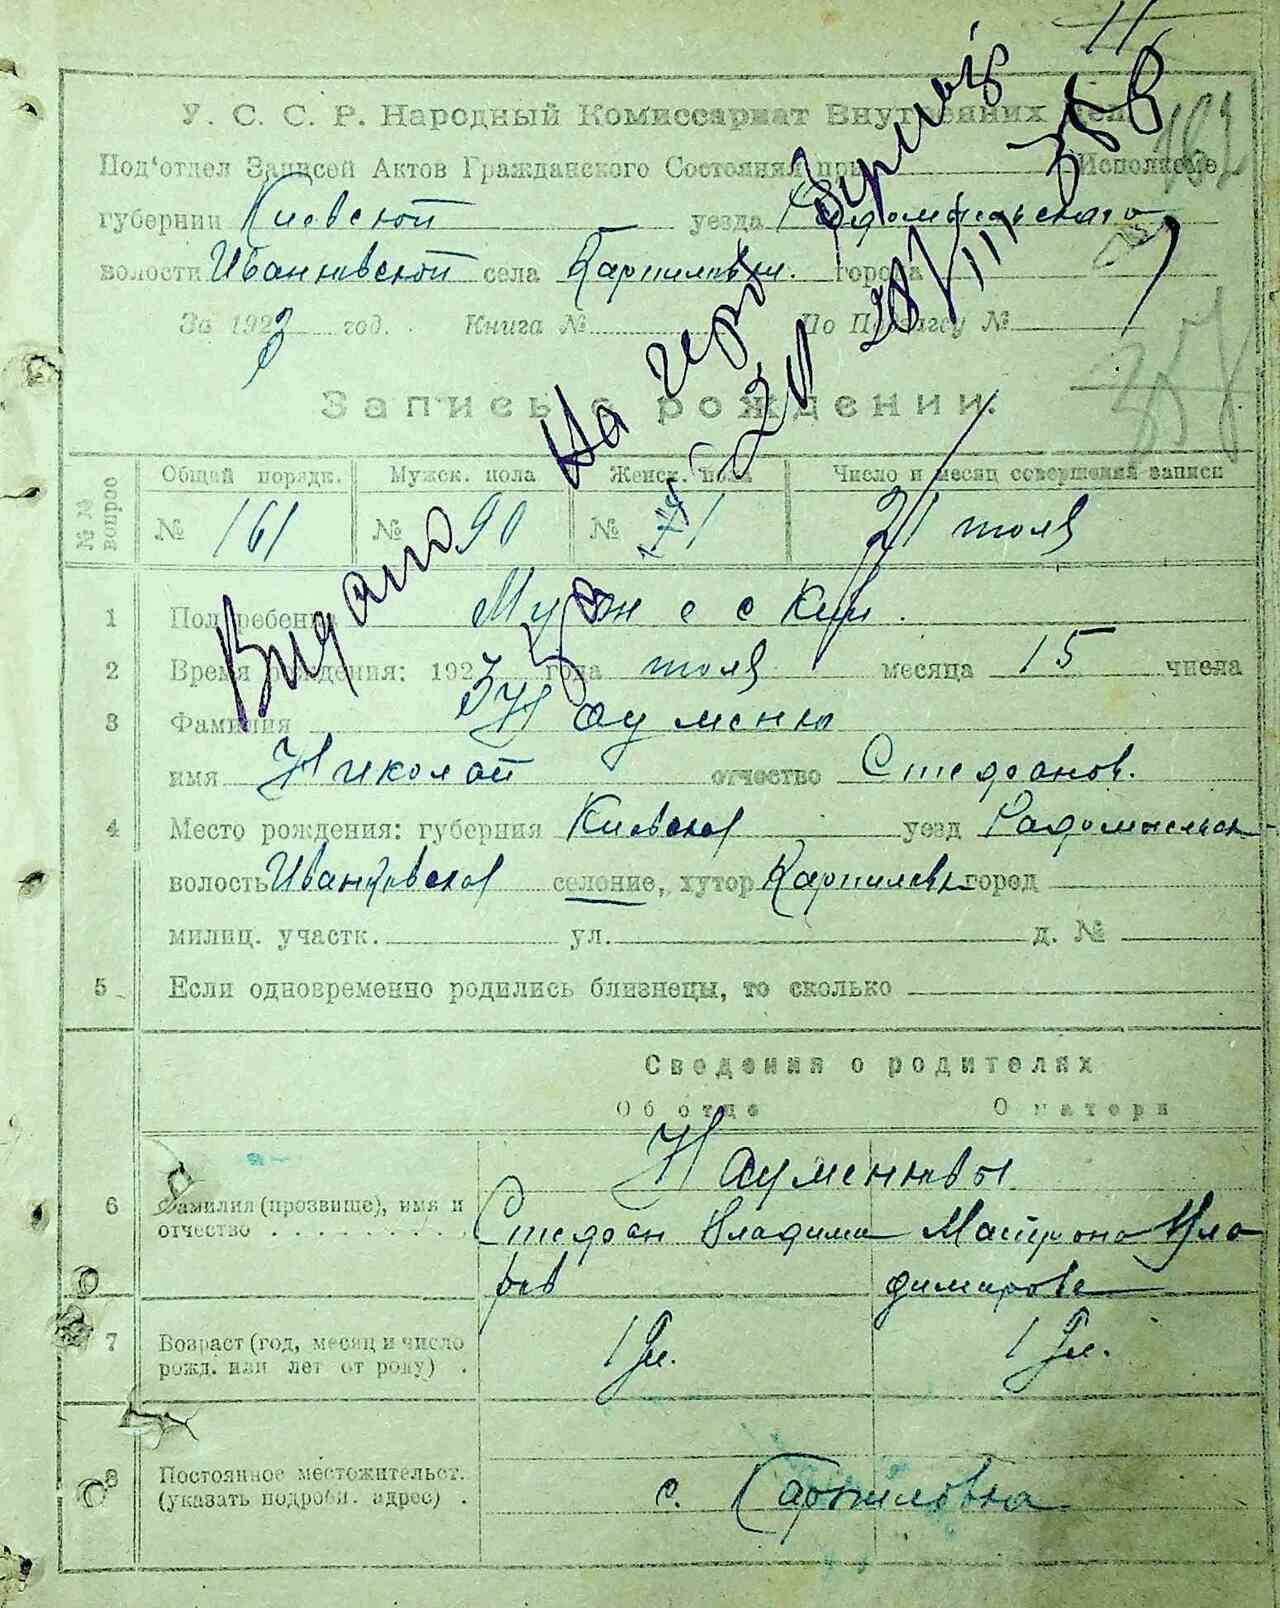 У. С. С. Р. Народный Комиссариат Внутренних Дел
Под'отдел Записей Актов Гражданского Состояния при Исполкоме
губернии Киевской уезда Радомысльского
волости Иванковской села Карпиловки. города
За 1923 год. Книга № По Порядку №
Запись о рождении.
№№ вопрос
Общий порядк. Мужск. пола Женск. пола Число и месяц совершения записи
№ 161 № 90 № 71 21 июля
Видано на
1 Пол ребенка Мужесский.
2 Время рождения: 1923 года июля месяца 15 числа
3 Фамилия Науменко
имя Николай отчество Стефанов.
4 Место рождения: губерния Киевская уезд Радомысльск
волость Иванковская селение, хутор Карпиловка город
милиц. участк. ул. д. №
5 Если одновременно родились близнецы, то сколько
Сведения о родителях
Об отце О матери
Науменковы
6 Фамилия (прозвище), имя и Стефан Владими Матрона Вла
отчество ров димирова
7 Возраст (год, месяц и число
рожд. или лет от роду) .
8 Постоянное местожительст. с. Карпиловка
(указать подробн. адрес) .